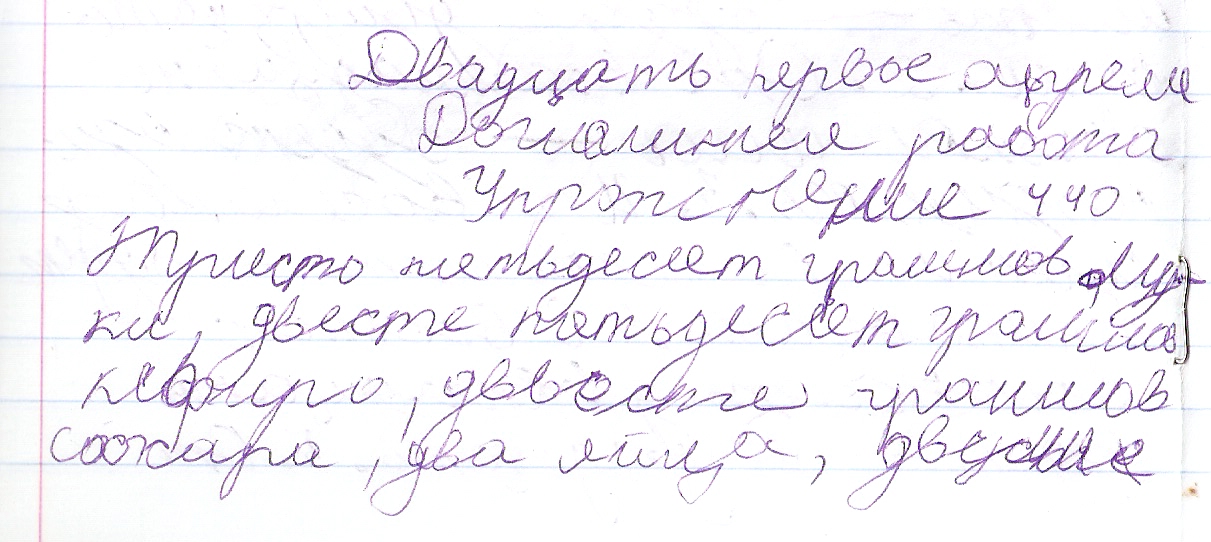 Двадцать первое апреля
Домашняя работа
Упражнение 440.
Триста пятьдесят граммов му-
ки, двести пятьдесят граммов
кефира, двести граммов
сахара, два яйца,